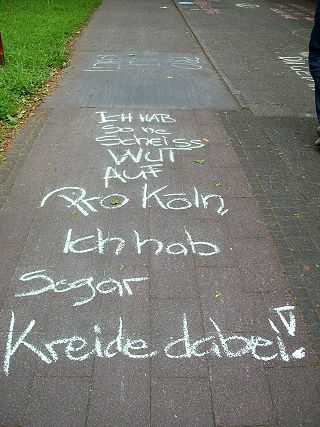 ICH HAB
So ne
Scheiss
WUT
AUF
Pro Köln,
Ich hab
Sogar
Kreide dabei!